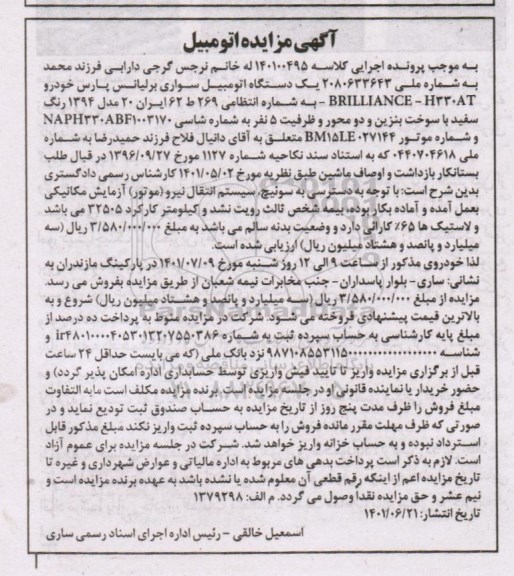 آگهی مزایده اتومبیل
به موجب پرونده اجرایی کلاسه ۱۴۰۱۰۰۴۹۵ له خانم نرجس گرجی دارابی فرزند محمد
به شماره ملی ۲۰۸۰۶۳۳۶۴۳ یک دستگاه اتومبیل سواری برلیانس پارس خودرو
BRILLIANCE - H۳۳۰AT - به شماره انتظامی ۲۶۹ ط ۶۲ ایران ۲۰ مدل ۱۳۹۴ رنگ
سفید با سوخت بنزین و دو محور و ظرفیت ۵ نفر به شماره شاسی NAPH۳۳۰ABF۱۰۰۳۱۷۰
و شماره موتور BM۱۵LE۰۲۷۱۴۴ متعلق به آقای دانیال فلاح فرزند حمیدرضا به شماره
ملی ۰۴۴۰۷۰۴۶۱۸ که به استناد سند نکاحیه شماره ۱۱۲۷ مورخ ۱۳۹۶/۰۹/۲۷ در قبال طلب
بستانکار بازداشت و اوصاف ماشین طبق نظریه مورخ ۱۴۰۱/۰۵/۰۲ کارشناس رسمی دادگستری
بدین شرح است: با توجه به دسترسی به سوئیچ، سیستم انتقال نیرو (موتور) آزمایش مکانیکی
بعمل آمده و آماده بکار بوده، بیمه شخص ثالث رویت نشد و کیلومتر کارکرد ۳۲۵۰۵ می باشد
و لاستیک ها ۶۵٪ کارائی دارد و وضعیت بدنه سالم می باشد به مبلغ ۳/۵۸۰/۰۰۰/۰۰۰ ریال (سه
میلیارد و پانصد و هشتاد میلیون ریال) ارزیابی شده است.
لذا خودروی مذکور از ساعت ۹ الی ۱۲ روز شنبه مورخ ۱۴۰۱/۰۷/۰۹ در پارکینگ مازندران به
نشانی: ساری- بلوار پاسداران - جنب مخابرات نیمه شعبان از طریق مزایده بفروش می رسد.
مزایده از مبلغ ۳/۵۸۰/۰۰۰/۰۰۰ ریال (سه میلیارد و پانصد و هشتاد میلیون ریال) شروع و به
بالاترین قیمت پیشنهادی فروخته می شود. شرکت در مزایده منوط به پرداخت ده درصد از
مبلغ پایه کارشناسی به حساب سپرده ثبت به شماره ir۴۸۰۱۰۰۰۰۴۰۵۳۰۱۳۲۰۷۵۵۰۳۸۶ و
شناسه ۹۸۷۱۰۸۵۵۳۱۱۵۰۰۰۰۰۰۰۰۰۰۰۰۰۰۰۰۰۰ نزد بانک ملی (که می بایست حداقل ۲۴ ساعت
قبل از برگزاری مزایده واریز تا تایید فیش واریزی توسط حسابداری اداره امکان پذیر گردد) و
حضور خریدار یا نماینده قانونی او در جلسه مزایده است. برنده مزایده مکلف است مابه التفاوت
مبلغ فروش را ظرف مدت پنج روز از تاریخ مزایده به حساب صندوق ثبت تودیع نماید و در
صورتی که ظرف مهلت مقرر مانده فروش را به حساب سپرده ثبت واریز نکند مبلغ مذکور قابل
استرداد نبوده و به حساب خزانه واریز خواهد شد. شرکت در جلسه مزایده برای عموم آزاد
است. لازم به ذکر است پرداخت بدهی های مربوط به اداره مالیاتی و عوارض شهرداری و غیره تا
تاریخ مزایده اعم از اینکه رقم قطعی آن معلوم شده یا نشده باشد به عهده برنده مزایده است و
نیم عشر و حق مزایده نقدا وصول می گردد. م الف: ۱۳۷۹۲۹۸
تاریخ انتشار: ۱۴۰۱/۰۶/۲۱
اسمعیل خالقی - رئیس اداره اجرای اسناد رسمی ساری